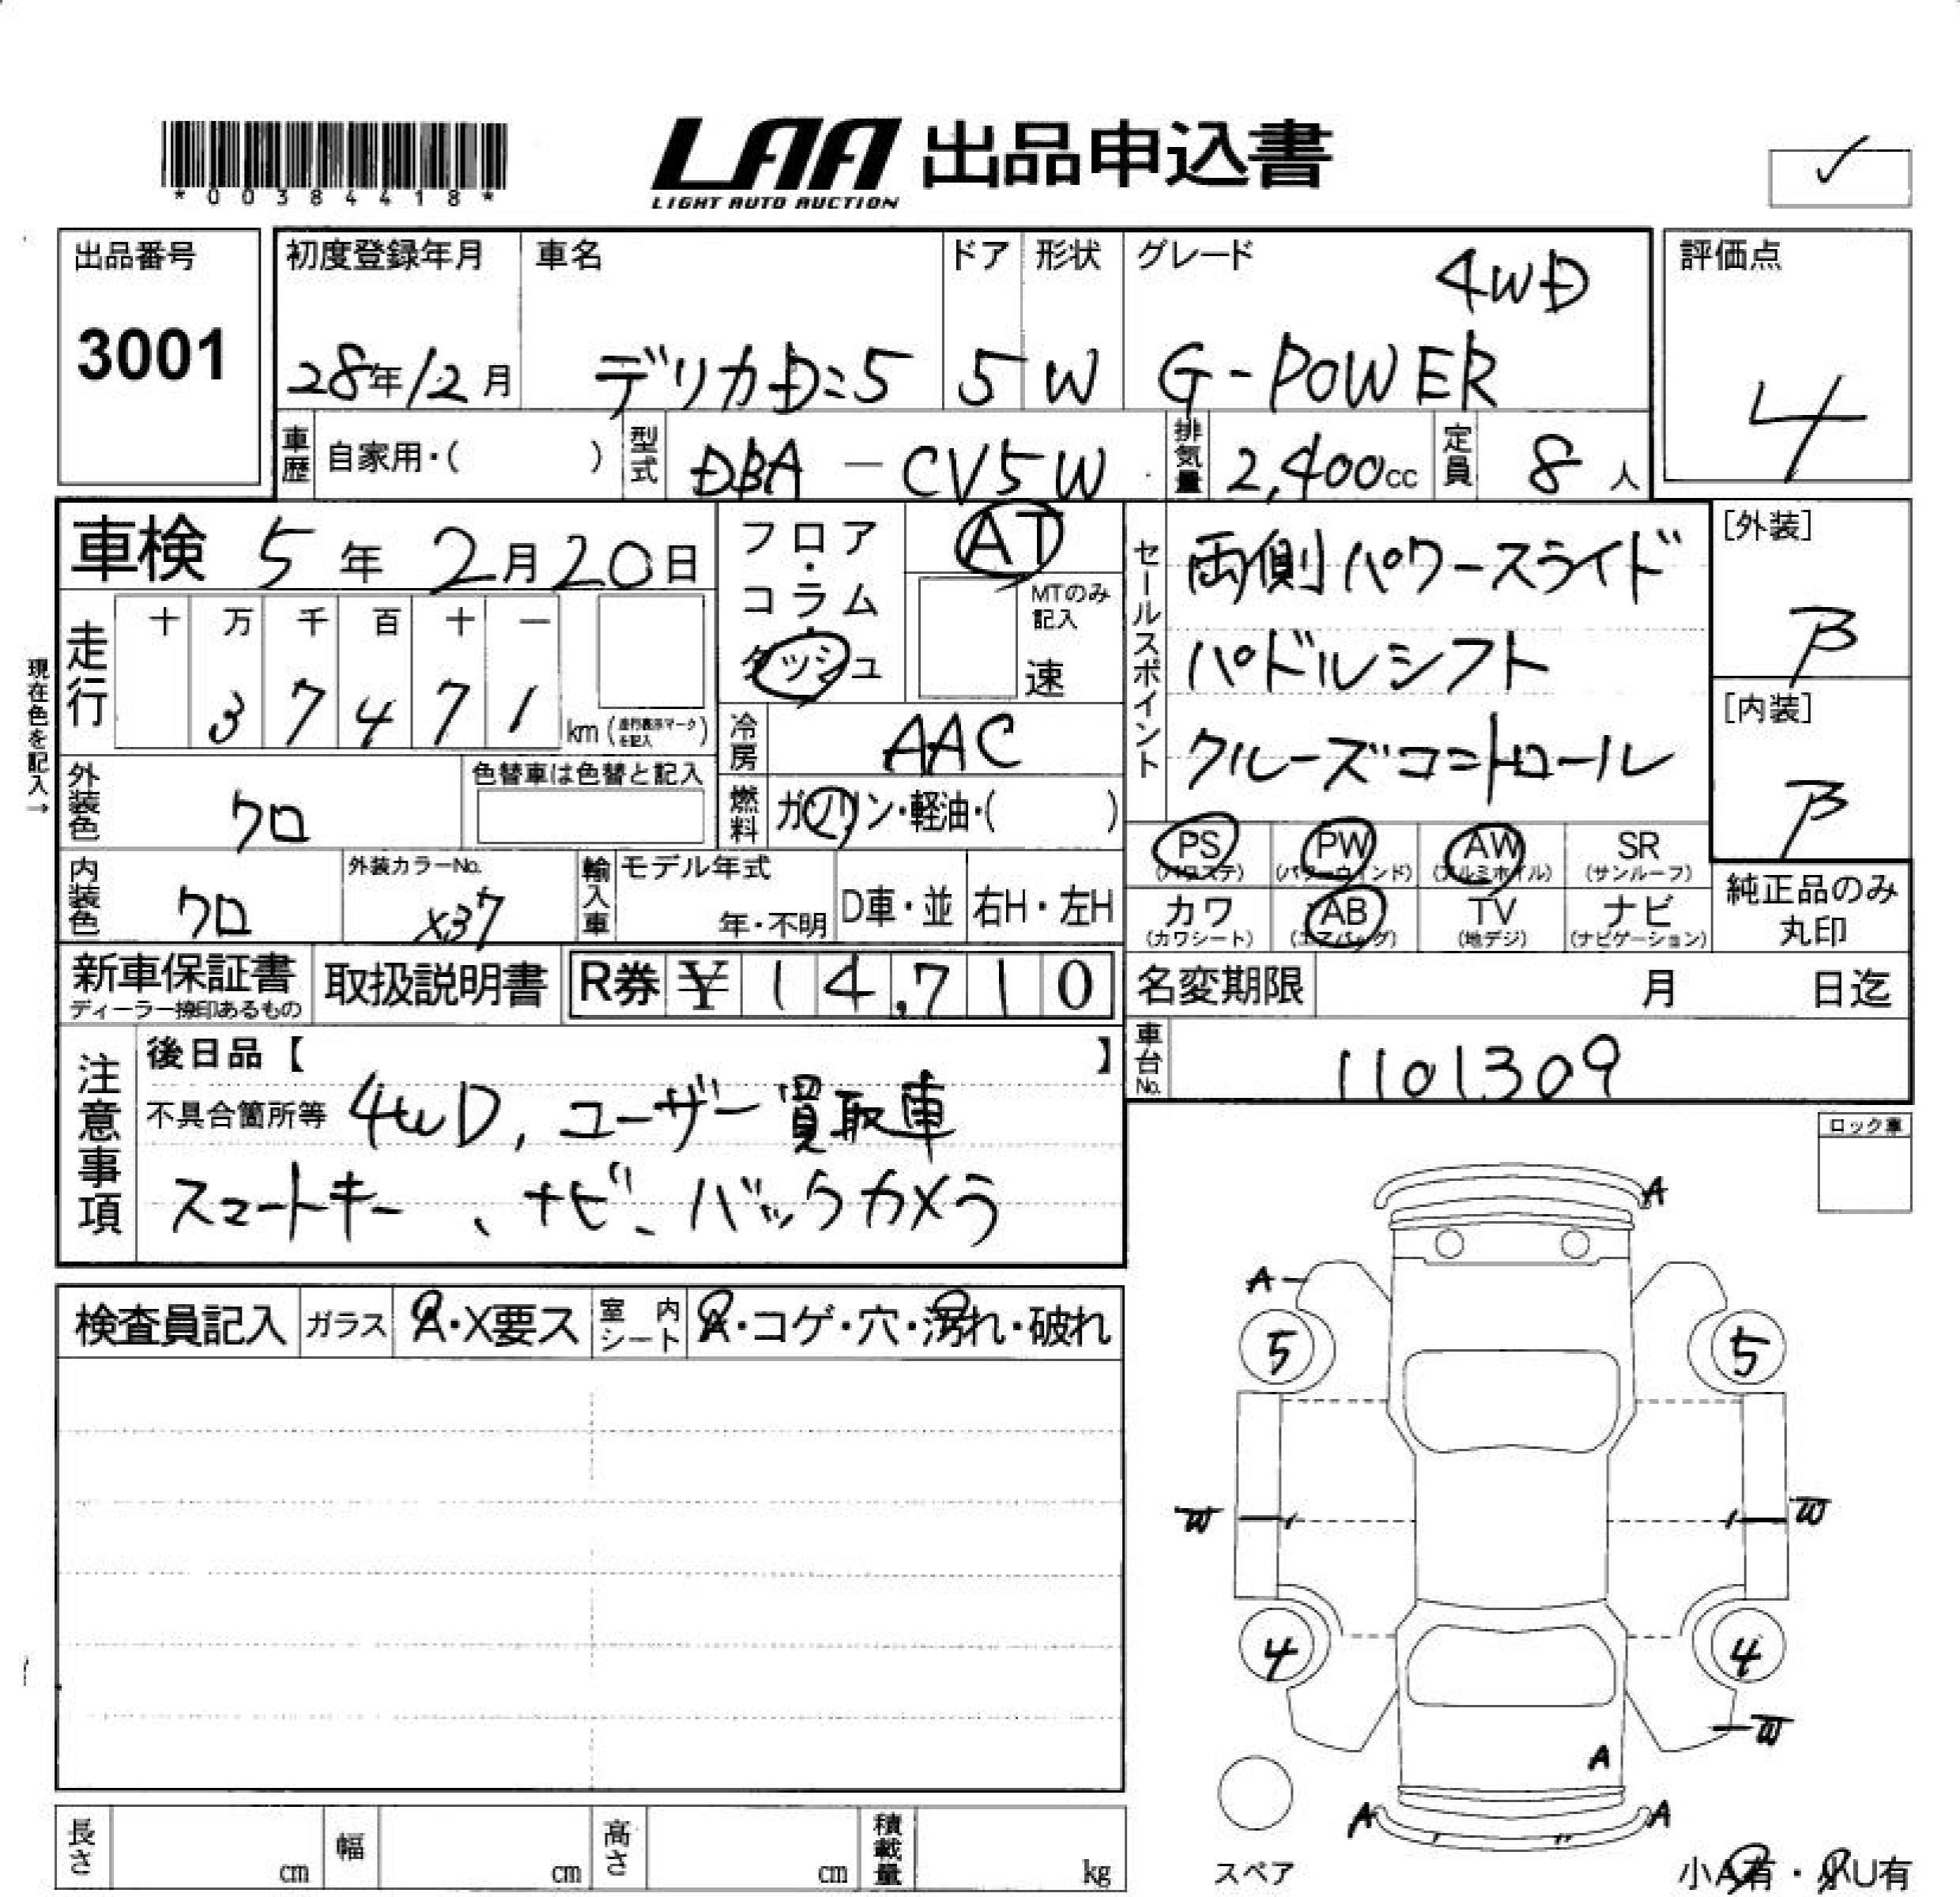 *00384418*
LAA 出品申込書
LIGHT AUTO AUCTION
✓
出品番号
3001
初度登録年月
28年12月
車名
デリカD:5
ドア
5
形状
W
グレード
4WD
G-POWER
評価点
4
車歴 自家用・( )
型式 DBA-CV5W
排気量 2,400cc
定員 8人
車検 5年2月20日
現在色を記入→
走行
十 万 千 百 十 一
3 7 4 7 1 km (走行表示マークを記入)
外装色 クロ
色替車は色替と記入
内装色 クロ
外装カラーNo. X37
フロア・コラム・ダッシュ
AT
MTのみ記入
速
冷房 AAC
燃料 ガソリン・軽油・( )
輸入車 モデル年式 年・不明
D車・並 右H・左H
セールスポイント
両側パワースライド
パドルシフト
クルーズコントロール
[外装]
β
[内装]
β
PS (パワステ) PW (パワーウインド) AW (アルミホイル) SR (サンルーフ)
カワ (カワシート) AB (エアバッグ) TV (地デジ) ナビ (ナビゲーション)
純正品のみ丸印
新車保証書
ディーラー捺印あるもの
取扱説明書
R券 ¥14,710
名変期限 月 日迄
車台No. 1101309
注意事項
後日品【 】
不具合箇所等 4WD, ユーザー買取車
スマートキー、ナビ、バックカメラ
ロック車
検査員記入 ガラス A・X要ス 室内シート A・コゲ・穴・汚れ・破れ
A
A
5 5
W W
4 4
W
A
A A
スペア
小A有・小U有
長さ cm 幅 cm 高さ cm 積載量 kg